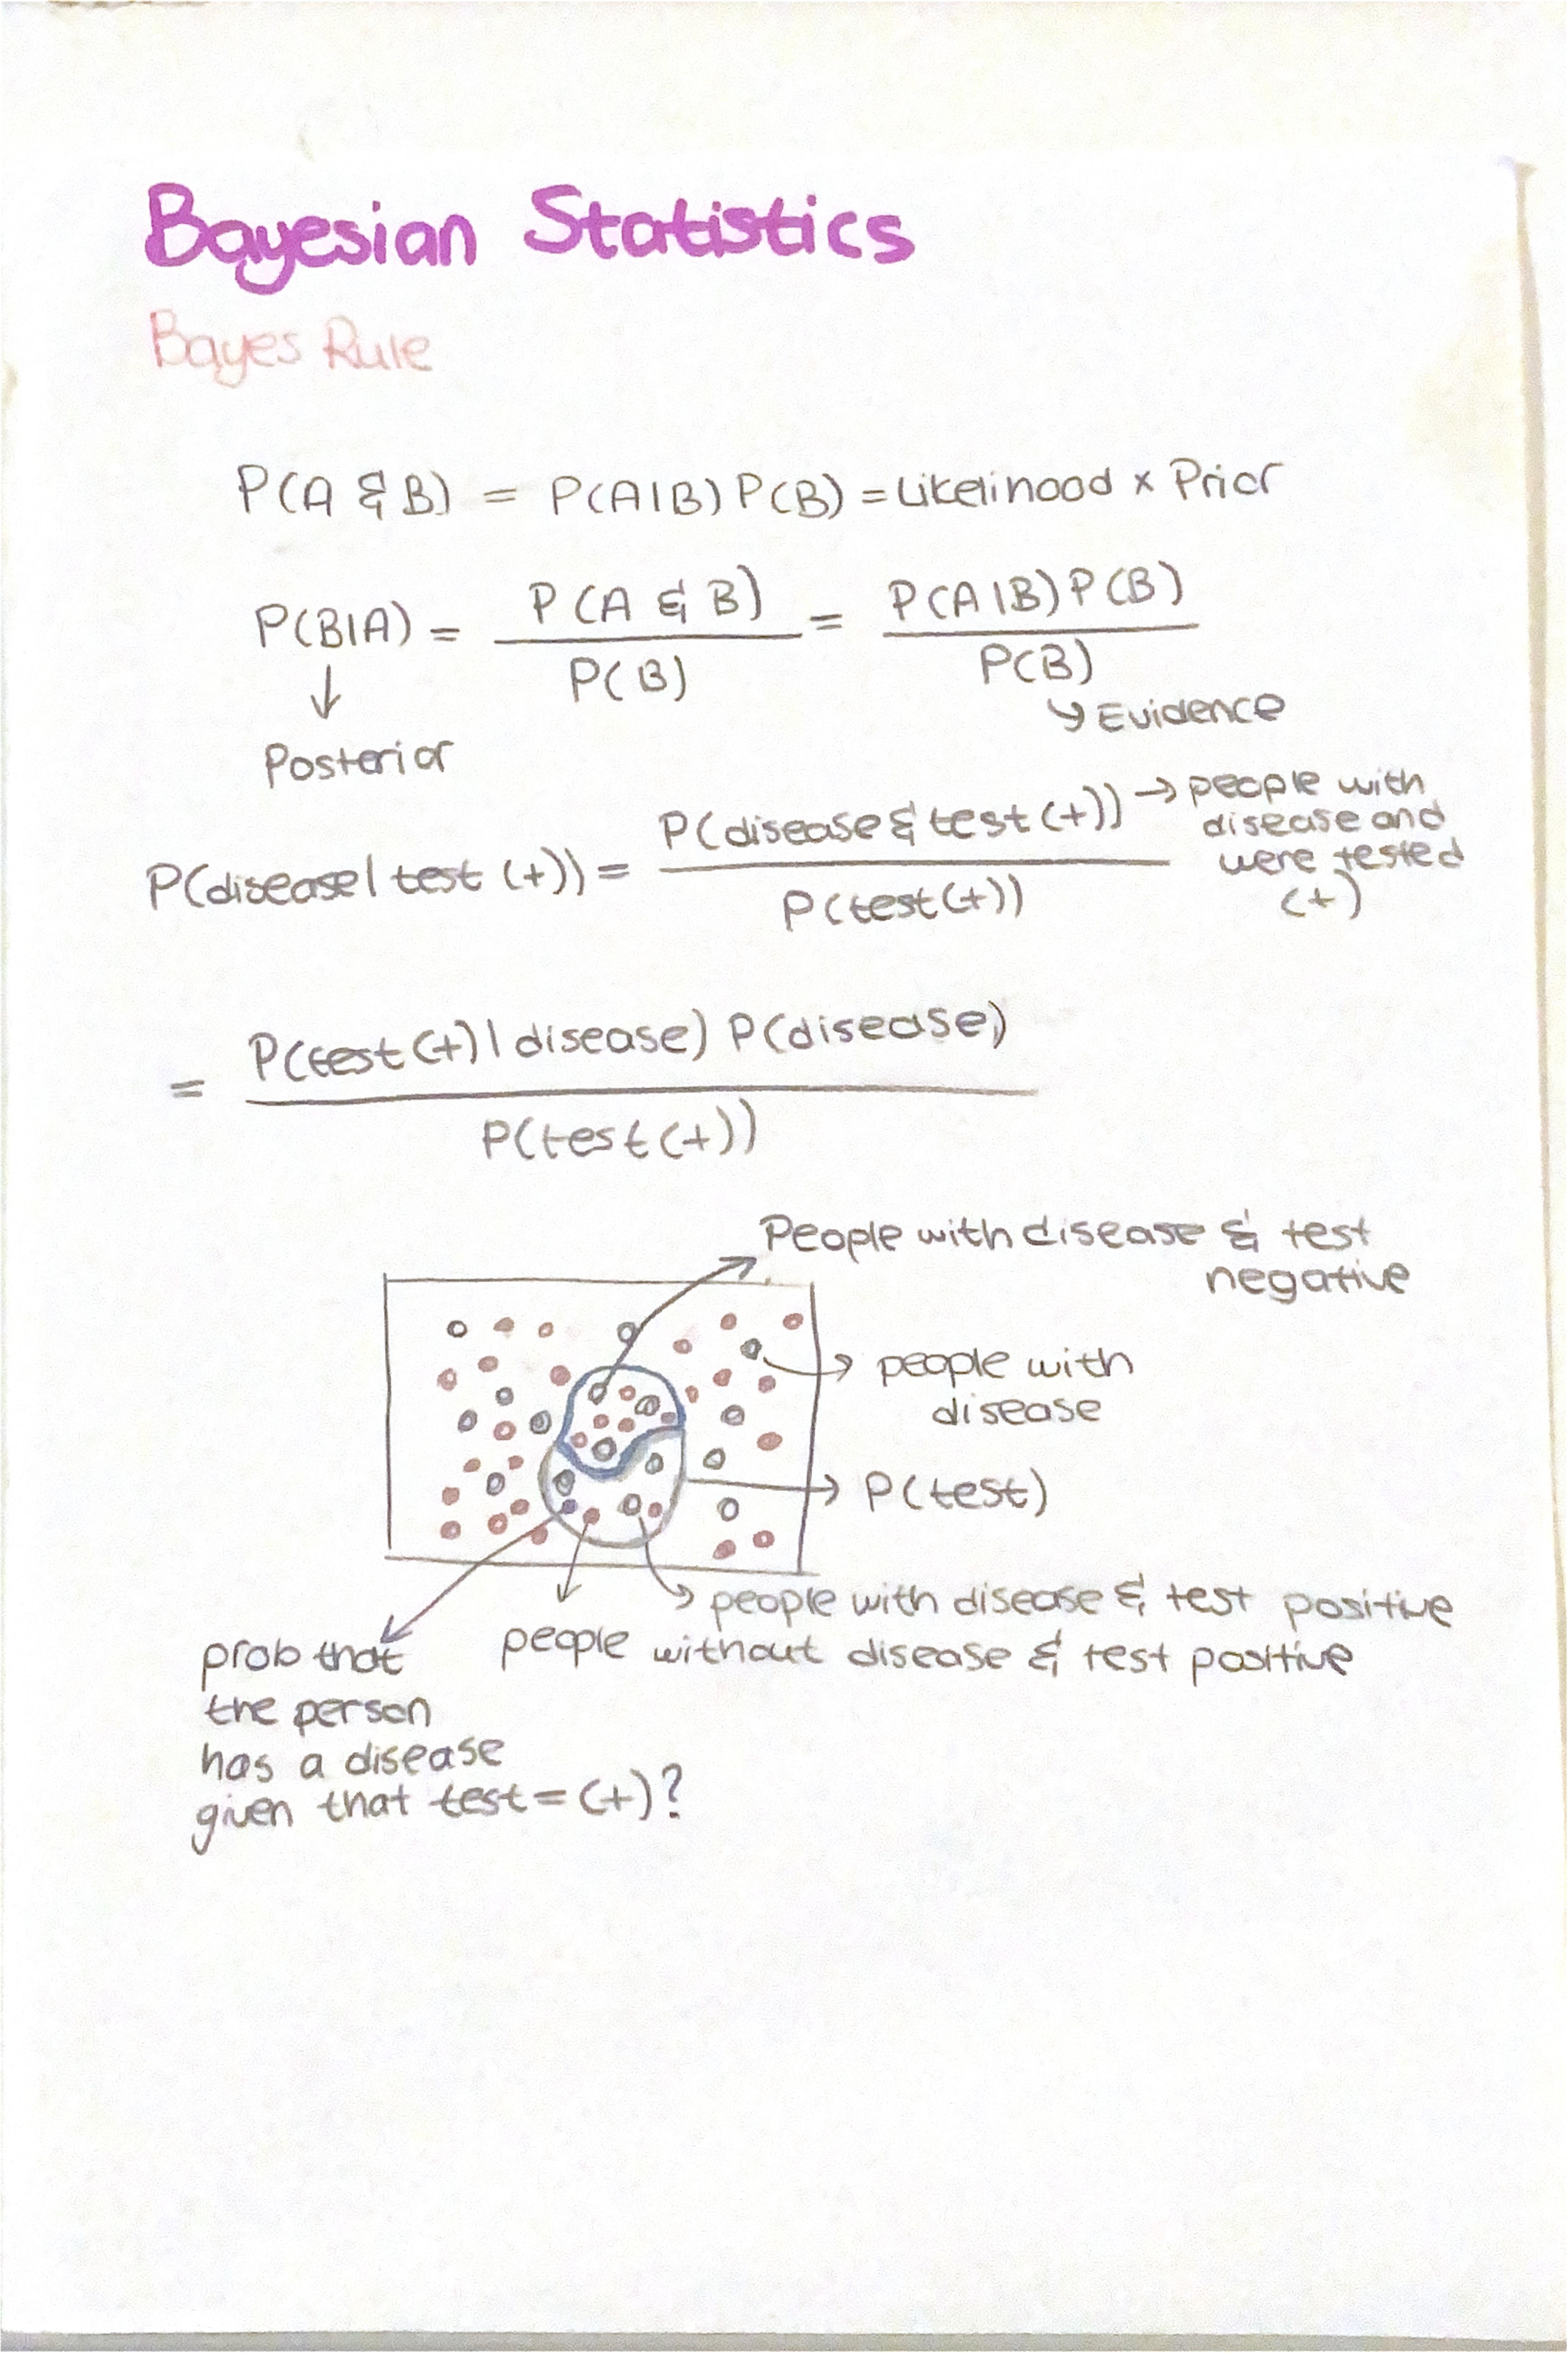 Bayesian Statistics
Bayes Rule
P(A & B) = P(A|B) P(B) = Likelihood × Prior
P(B|A) = P(A & B) / P(B) = P(A|B) P(B) / P(B)
↓ Posterior
↘ Evidence
P(disease | test (+)) = P(disease & test (+)) / P(test (+))
→ people with
disease and
were tested
(+)
= P(test (+) | disease) P(disease) / P(test (+))
People with disease & test
negative
→ people with
disease
→ P(test)
people with disease & test positive
people without disease & test positive
prob that
the person
has a disease
given that test = (+)?